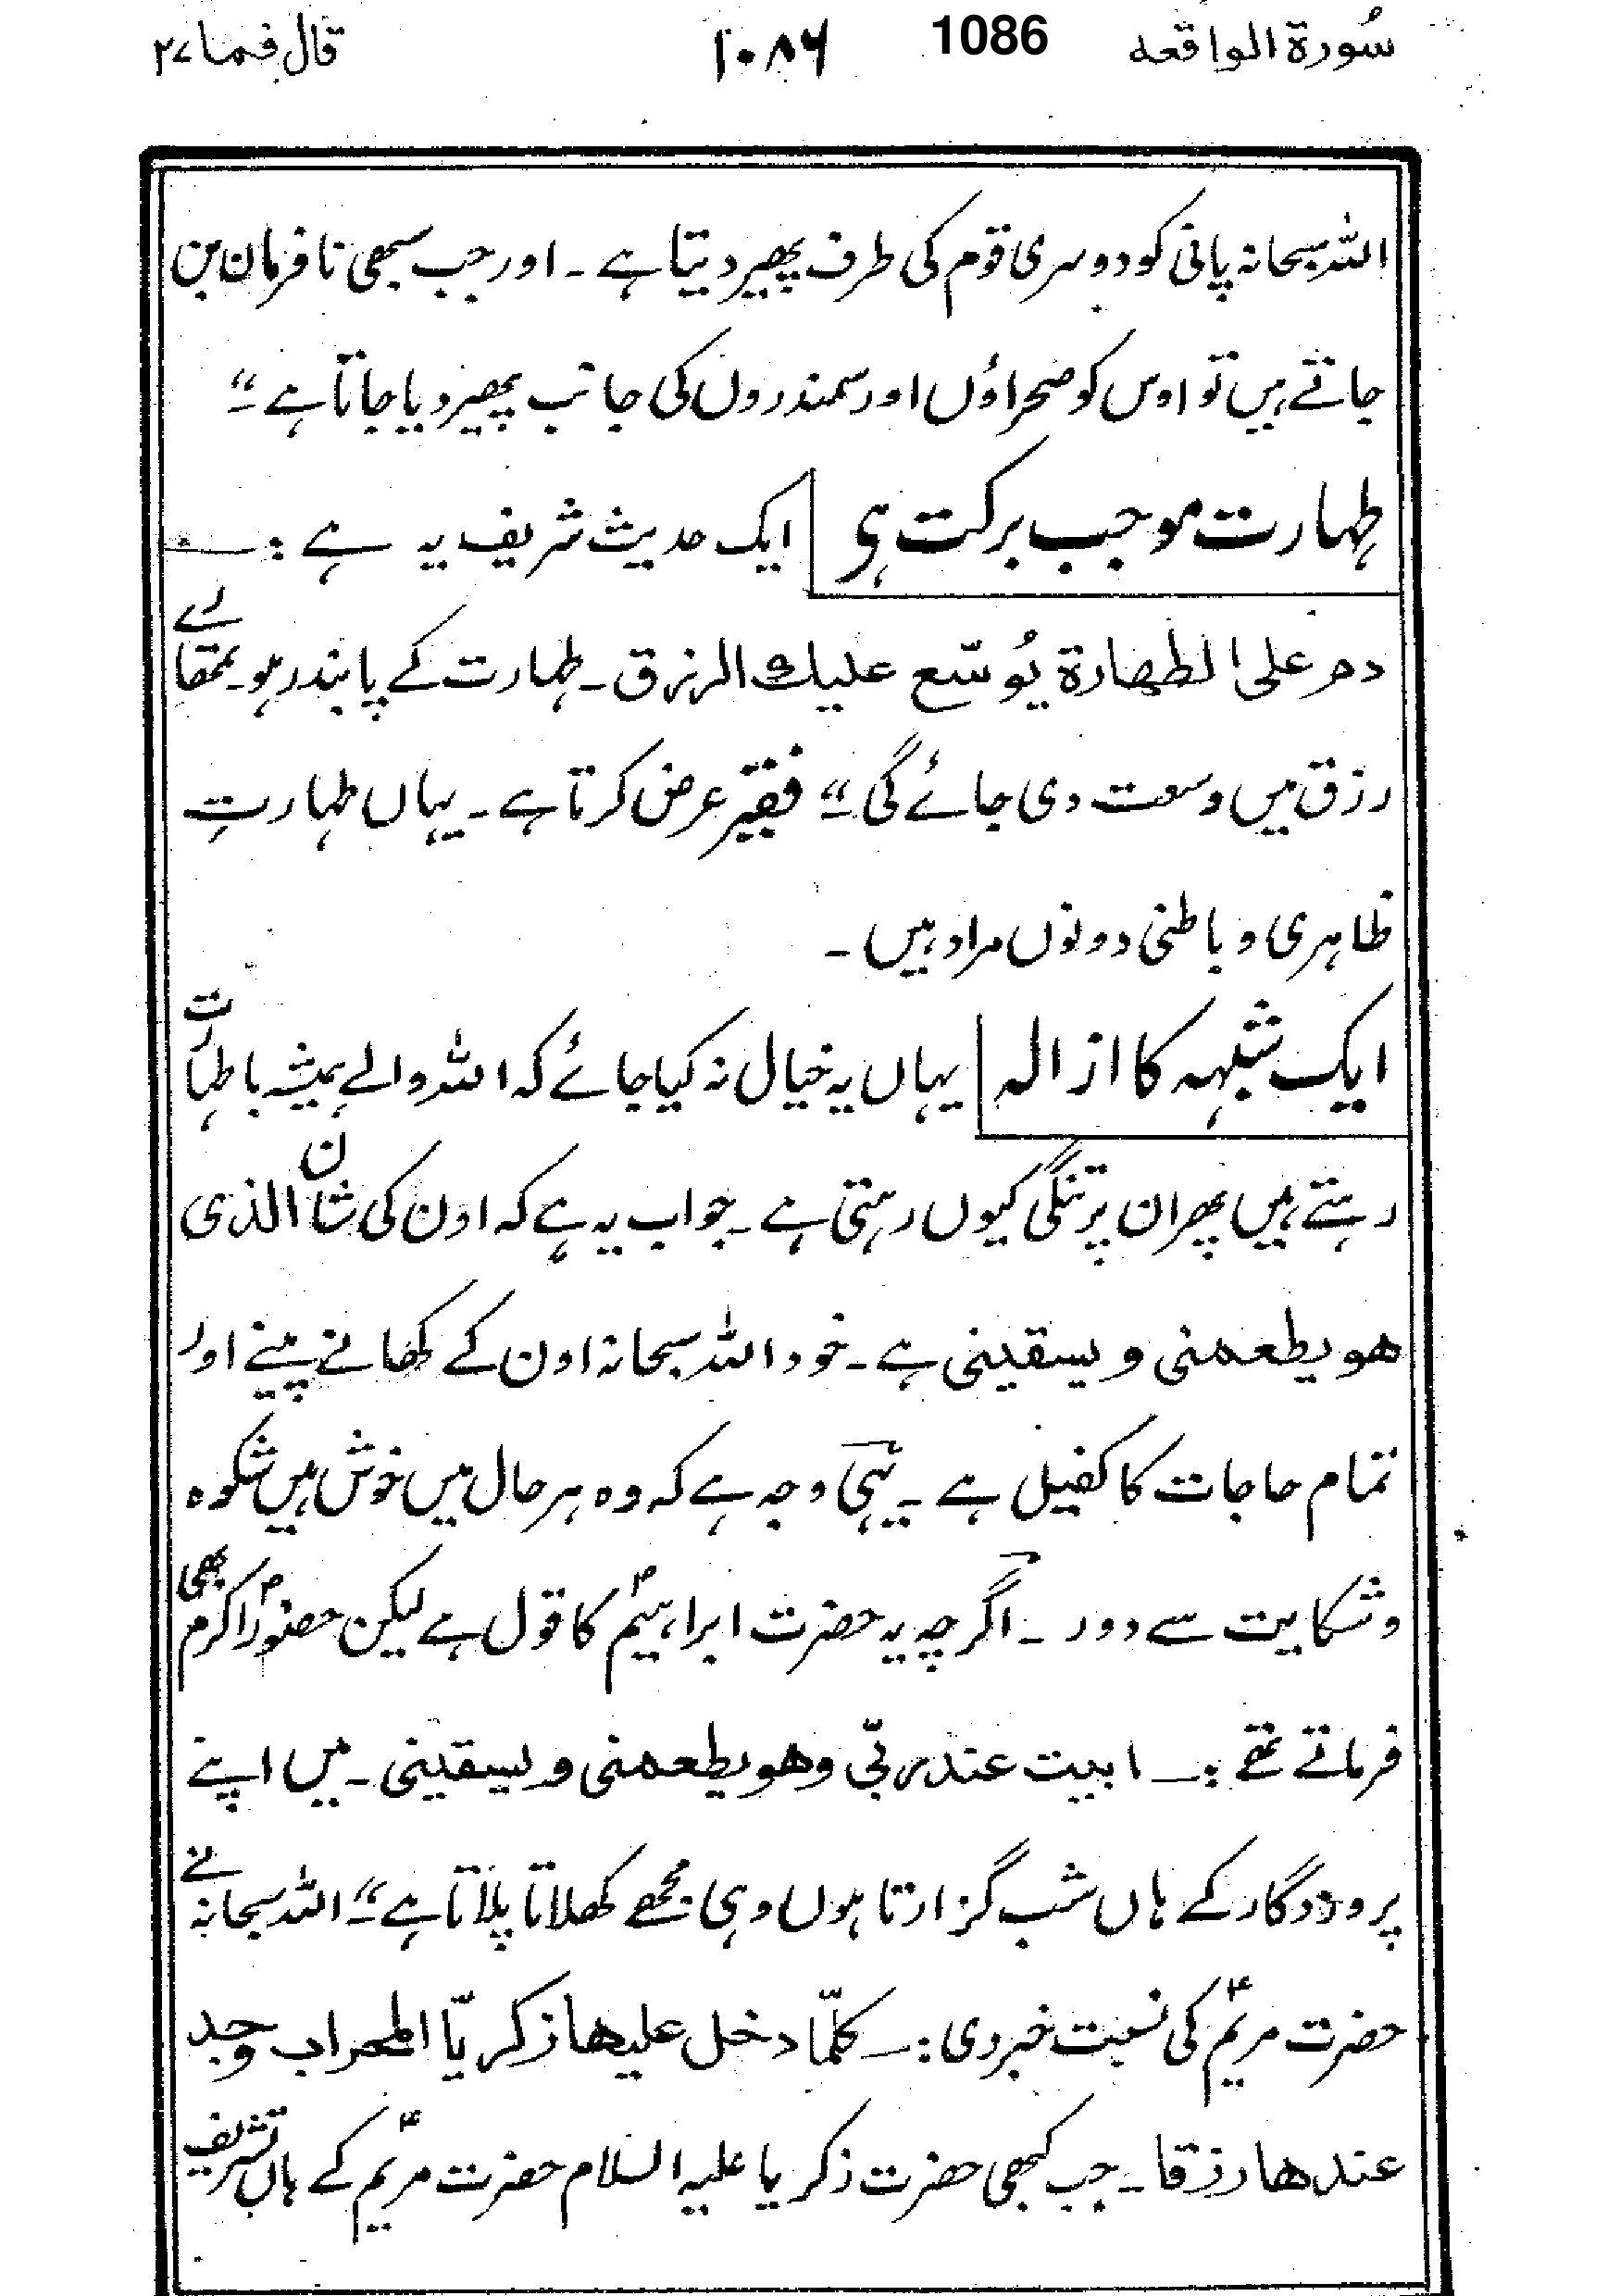 سُورة الواقعه 1086 ١٠٨٦ قال فما ٢٧
اللہ سبحانہ پانی کو دوسری قوم کی طرف پھیر دیتا ہے ۔ اور جب سبھی نا فرمان بن
جاتے ہیں تو اوس کو صحراؤں اور سمندروں کی جانب پھیر دیا جاتا ہے ۔“
طہارت موجب برکت ہی ایک حدیث شریف یہ ہے :ـــ
دم علی الطھارة یُوسّع علیك الرزق ۔ طہارت کے پابند رہو ۔ تمھارے
رزق میں وسعت دی جائے گی ۔“ فقیر عرض کرتا ہے ۔ یہاں طہارتِ
ظاہری و باطنی دونوں مراد ہیں ۔
ایک شبہہ کا ازالہ یہاں یہ خیال نہ کیا جائے کہ اللہ والے ہمیشہ با طہارت
رہتے ہیں پھر ان پر تنگی کیوں رہتی ہے ۔ جواب یہ ہے کہ اون کی شان الذی
ھو یطعمنی و یسقینی ہے ۔ خود اللہ سبحانہ اون کے کھانے پینے اور
تمام حاجات کا کفیل ہے ۔ یہی وجہ ہے کہ وہ ہر حال میں خوش ہیں شکوہ
و شکایت سے دور ۔ اگرچہ یہ حضرت ابراہیمؑ کا قول ہے لیکن حضورؐ اکرم بھی
فرماتے تھے :ـــ ابیت عند ربّی وھو یطعمنی و یسقینی ۔ میں اپنے
پروردگار کے ہاں شب گزارتا ہوں وہی مجھے کھلاتا پلاتا ہے ۔“ اللہ سبحانہ نے
حضرت مریمؑ کی نسبت خبر دی :ـــ کلمّا دخل علیھا زکریّا المحراب وجد
عندھا رزقا ۔ جب کبھی حضرت زکریا علیہ السلام حضرت مریمؑ کے ہاں تشریف